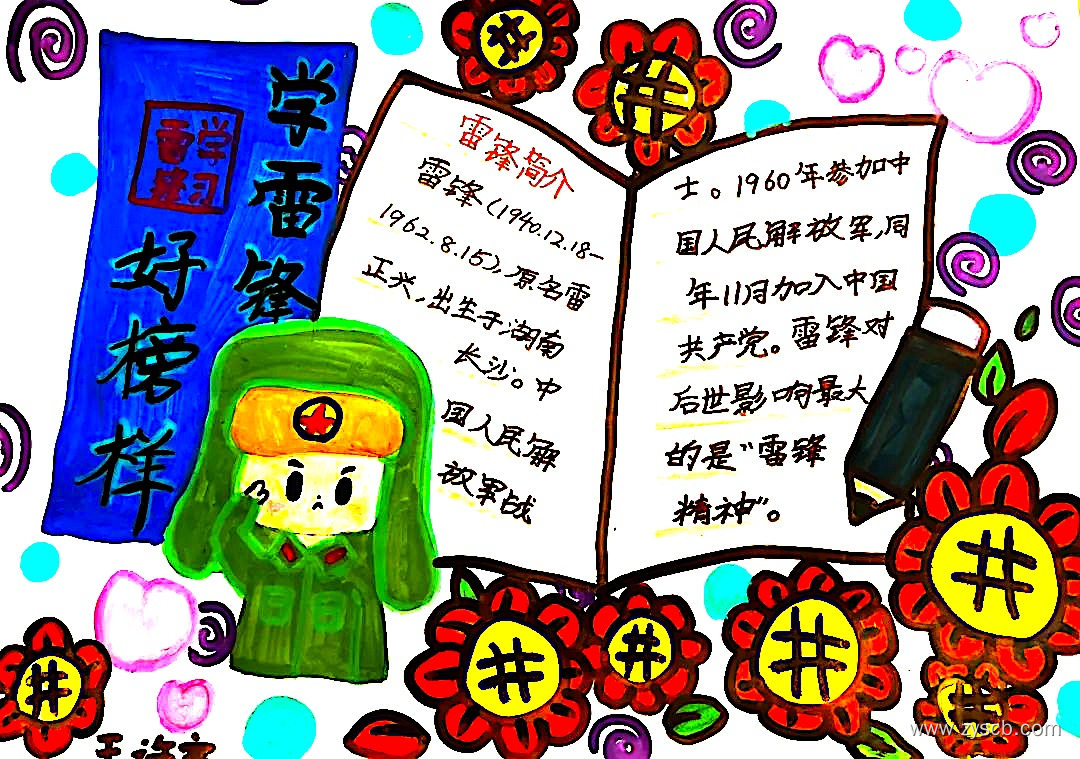 学雷锋
好榜样
学习
雷锋
雷锋简介
雷锋(1940.12.18-
1962.8.15),原名雷
正兴,出生于湖南
长沙。中
国人民解
放军战
士。1960年参加中
国人民解放军,同
年11月加入中国
共产党。雷锋对
后世影响最大
的是“雷锋
精神”。
www.zyscb.com